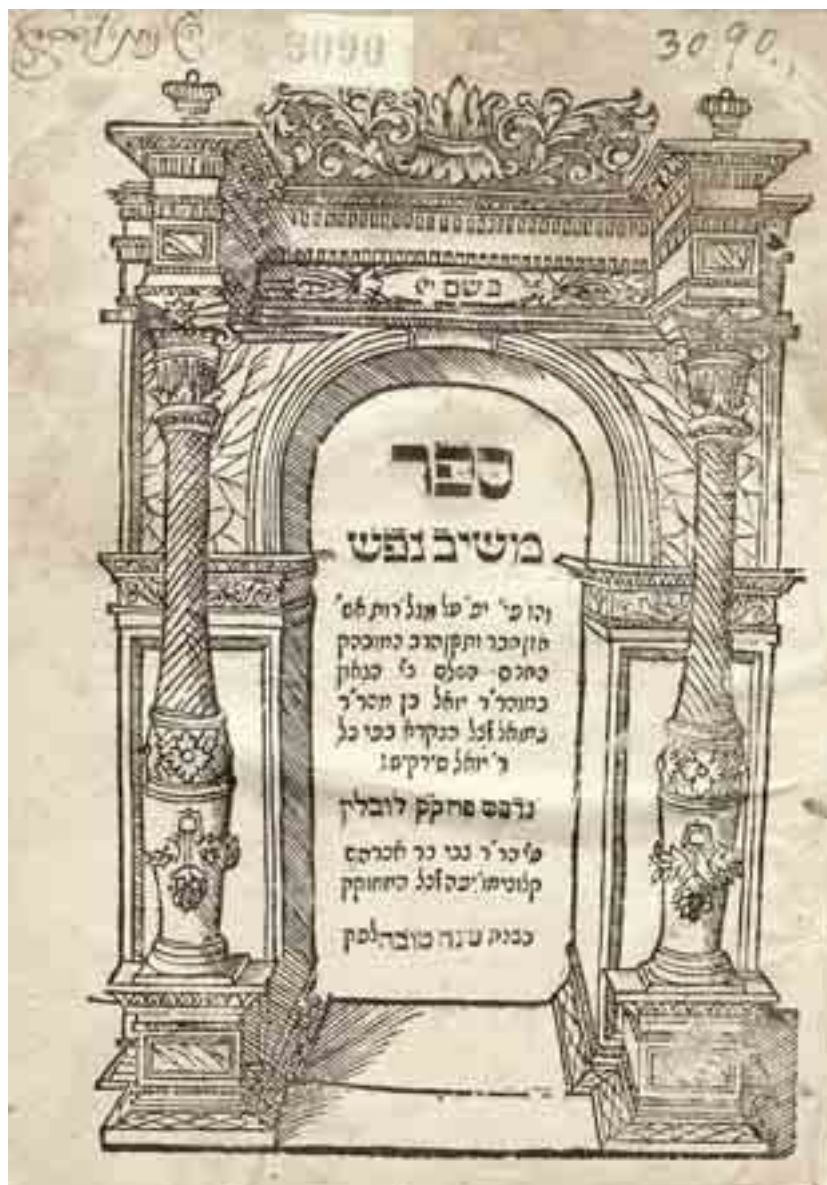 3090
3090
בשם יי
ספר
משיב נפש
והו פי' יפ' על מגל' רות אש'
הזקן הרב המובהק
החכם השלם כ' הגאון
כמוהר"ר יואל בן מהר"ר
הנקרא בפי כל
ר' יואל סירקיש:
נדפס פה ק"ק לובלין
ע"י הר"ר צבי בר אברהם
ז"ל המחוקק
בשנת שנה טובה לפק